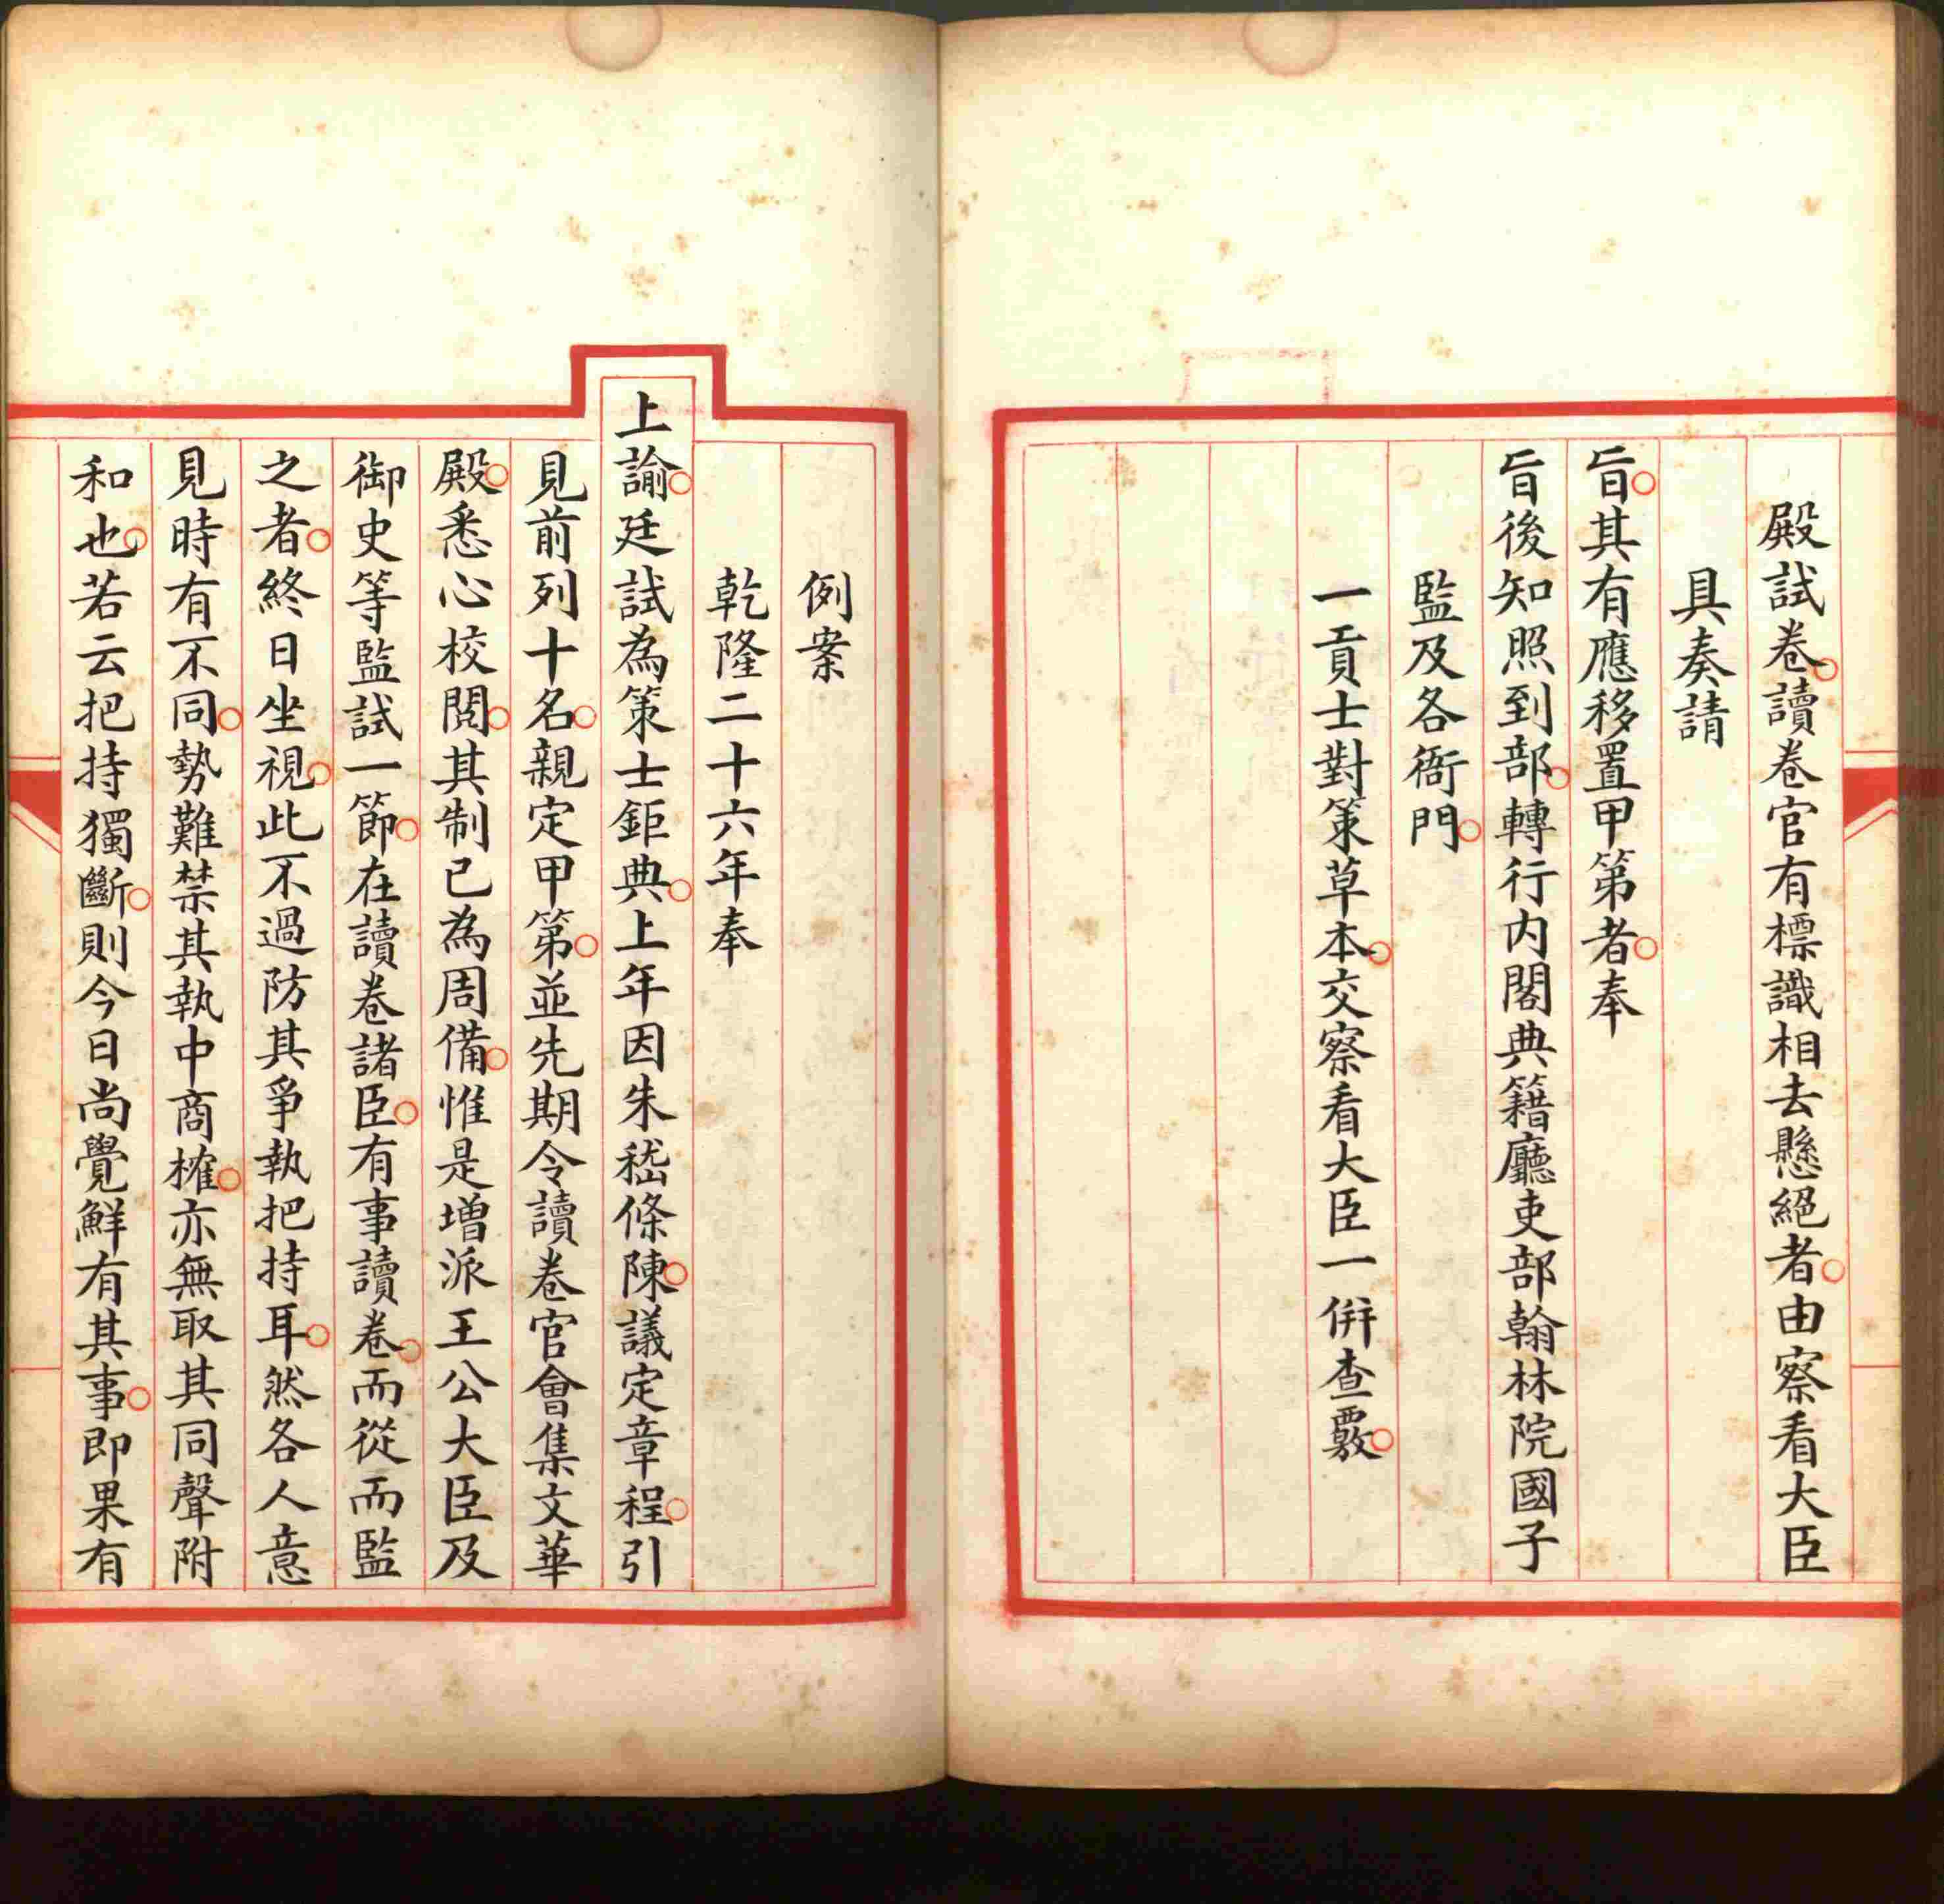 殿試卷讀卷官有標識相去懸絕者由察看大臣
具奏請
旨其有應移置甲第者奉
旨後知照到部轉行內閣典籍廳吏部翰林院國子
監及各衙門
一貢士對策草本交察看大臣一併查覈
例案
乾隆二十六年奉
上諭廷試為策士鉅典上年因朱嵇條陳議定章程引
見前列十名親定甲第並先期令讀卷官會集文華
殿悉心校閱其制已為周備惟是增派王公大臣及
御史等監試一節在讀卷諸臣有事讀卷而從而監
之者終日坐視此不過防其爭執把持耳然各人意
見時有不同勢難禁其執中商榷亦無取其同聲附
和也若云把持獨斷則今日尚覺鮮有其事即果有